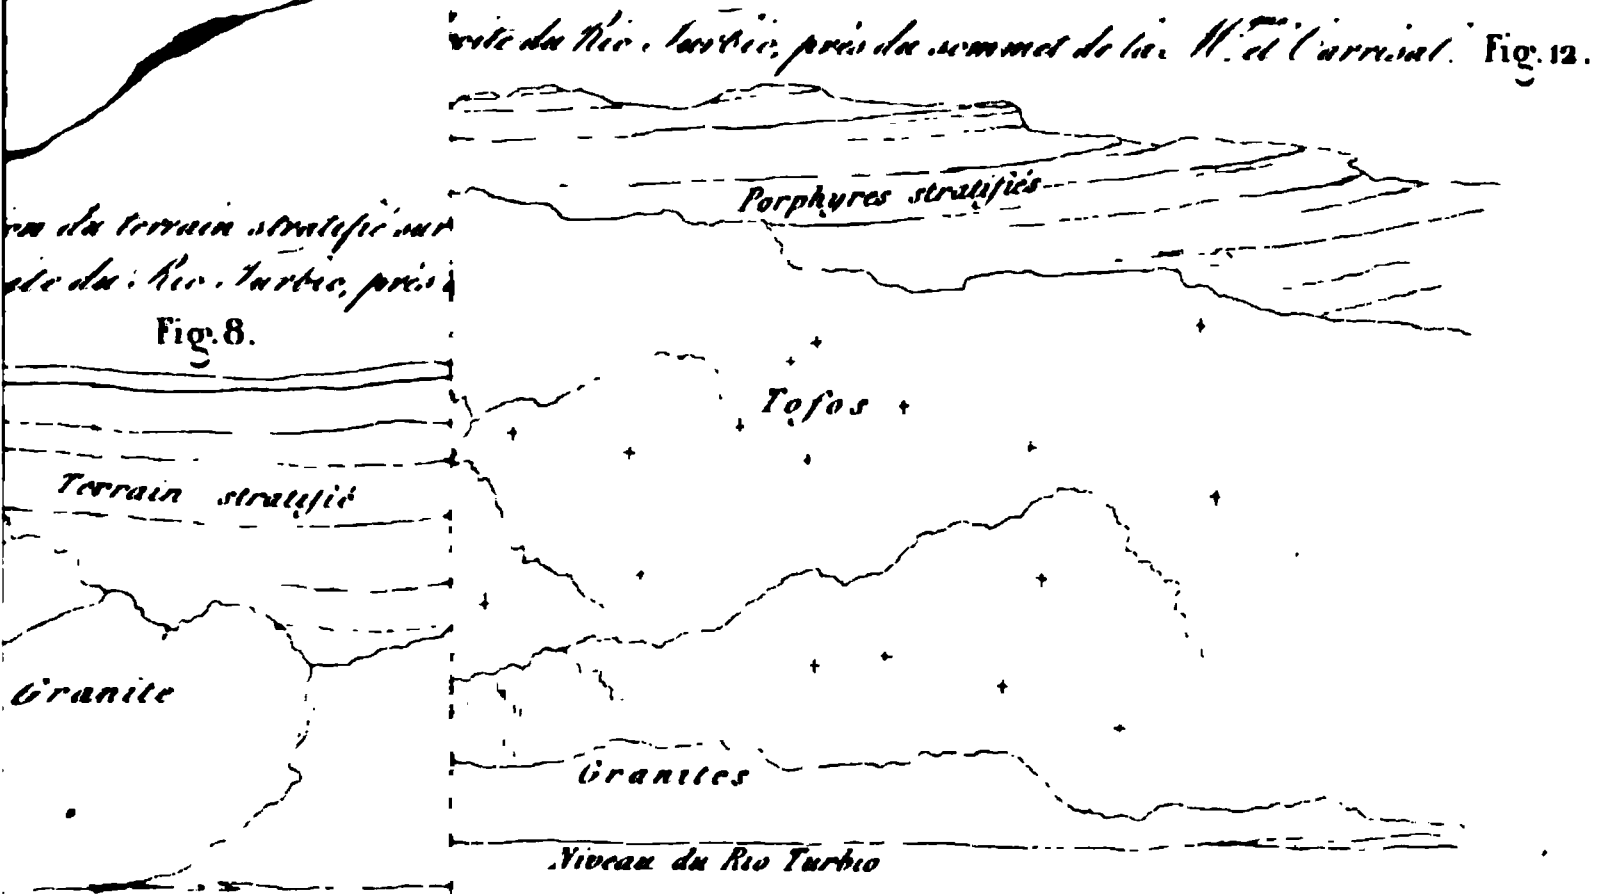 du Rio Turbio, près du sommet de la Mgne. del Carrisal. Fig. 12.
Porphyres stratifiés
du terrain stratifié sur
du Rio Turbio, près
Fig. 8.
Tofos
Terrain stratifié
Granite
Granites
Niveau du Rio Turbio